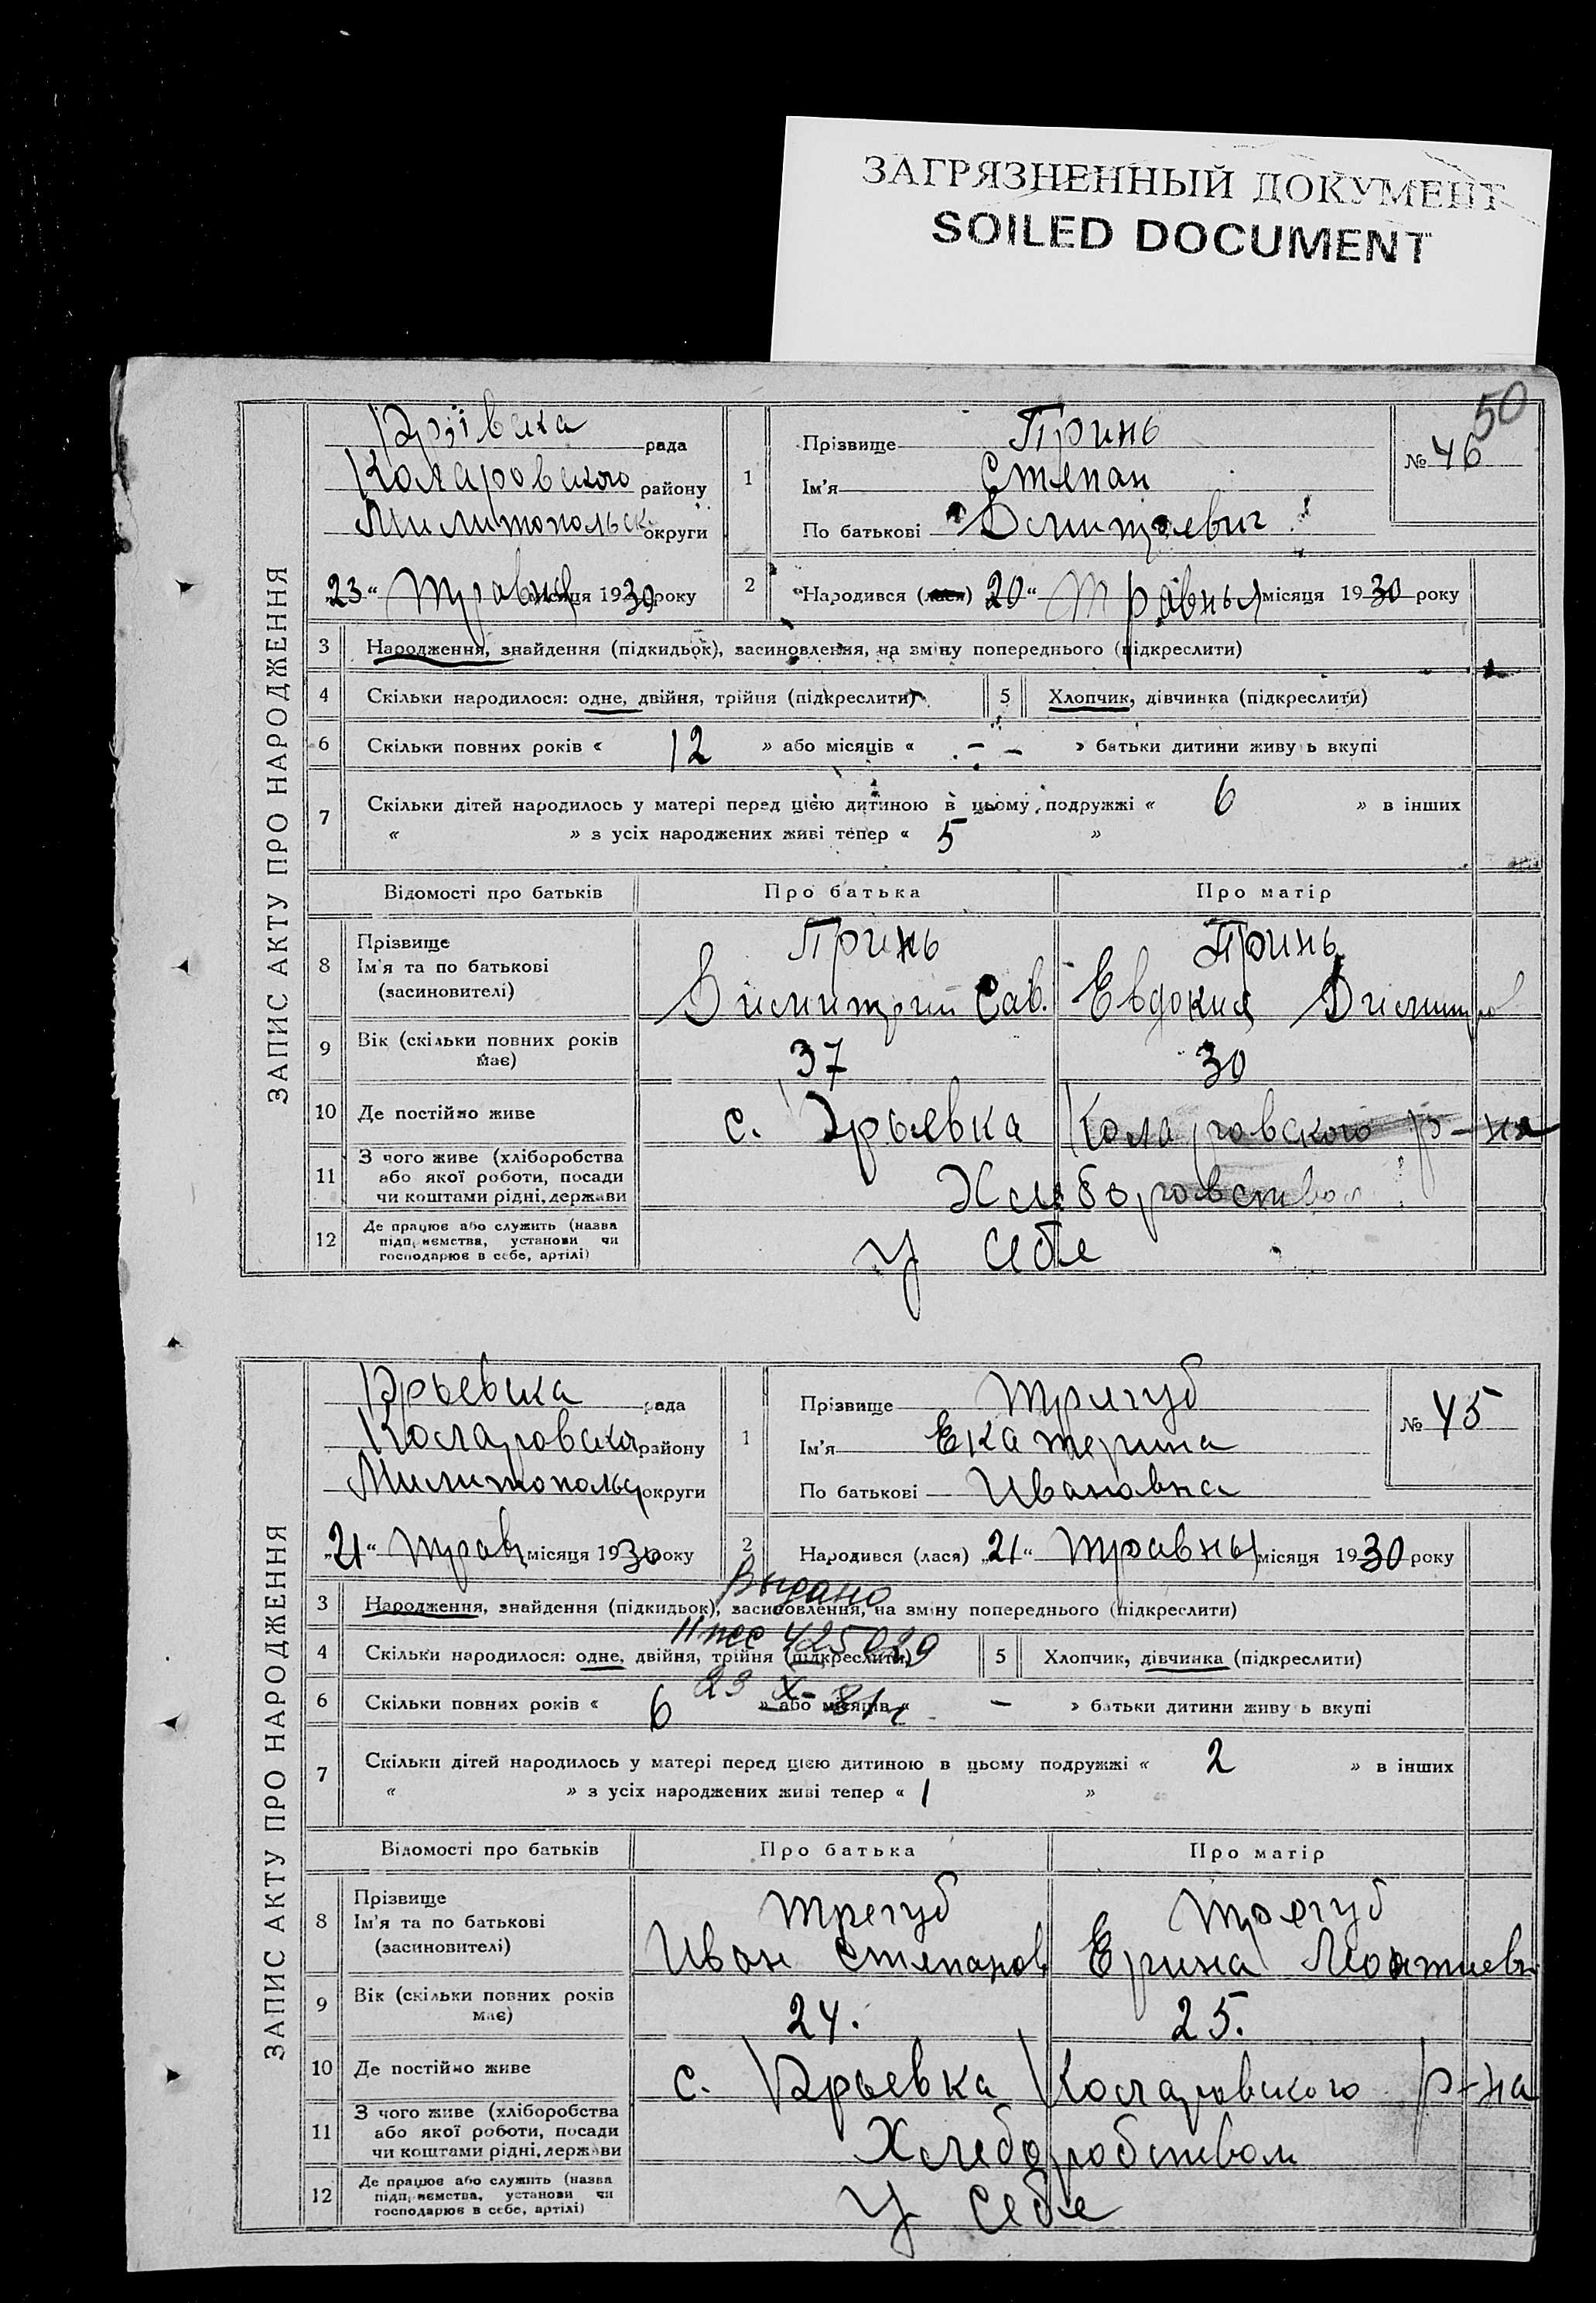 ЗАГРЯЗНЕННЫЙ ДОКУМЕНТ
SOILED DOCUMENT
50
ЗАПИС АКТУ ПРО НАРОДЖЕННЯ
рада
Коларовского району
Милитопольск округи
„23“ Травня місяця 1930 року
1 Прізвище Тринь
Ім'я Степан
По батькові Дмитревич
№ 46
2 Народився (лася) 20“ Травныя місяця 1930 року
3 Народження, знайдення (підкидьок), засиновлення, на зміну попереднього (підкреслити)
4 Скільки народилося: одне, двійня, трійня (підкреслити)
5 Хлопчик, дівчинка (підкреслити)
6 Скільки повних років « 12 » або місяців « - » батьки дитини живуть вкупі
7 Скільки дітей народилось у матері перед цією дитиною в цьому подружжі « 6 » в інших
« » з усіх народжених живі тепер « 5 »
Відомості про батьків Про батька Про матір
8 Прізвище
Ім'я та по батькові
(засиновителі)
Тринь
Димитрий Сав.
Тринь
Евдокия Димитров
9 Вік (скільки повних років має) 37 30
10 Де постійно живе с. Коларовского р-на
11 З чого живе (хліборобства
або якої роботи, посади
чи коштами рідні, держави
Хлеборобством
12 Де працює або служить (назва
підприємства, установи чи
господарює в себе, артілі)
У себе
ЗАПИС АКТУ ПРО НАРОДЖЕННЯ
рада
Коларовска району
Милитопольс округи
„21“ Травн місяця 1930 року
1 Прізвище Трегуб
Ім'я Екатерина
По батькові Ивановна
№ 45
2 Народився (лася) „21“ Травны місяця 1930 року
Выдано
3 Народження, знайдення (підкидьок), засиновлення, на зміну попереднього (підкреслити)
425029
4 Скільки народилося: одне, двійня, трійня (підкреслити)
5 Хлопчик, дівчинка (підкреслити)
23 X-81г
6 Скільки повних років « 6 » або місяців « - » батьки дитини живуть вкупі
7 Скільки дітей народилось у матері перед цією дитиною в цьому подружжі « 2 » в інших
« » з усіх народжених живі тепер « 1 »
Відомості про батьків Про батька Про матір
8 Прізвище
Ім'я та по батькові
(засиновителі)
Трегуб
Иван Степанов
Трегуб
Ерина Леонтиевн
9 Вік (скільки повних років має) 24. 25.
10 Де постійно живе с. Коларовского р-на
11 З чого живе (хліборобства
або якої роботи, посади
чи коштами рідні, держави
Хлеборобством
12 Де працює або служить (назва
підприємства, установи чи
господарює в себе, артілі)
У себе